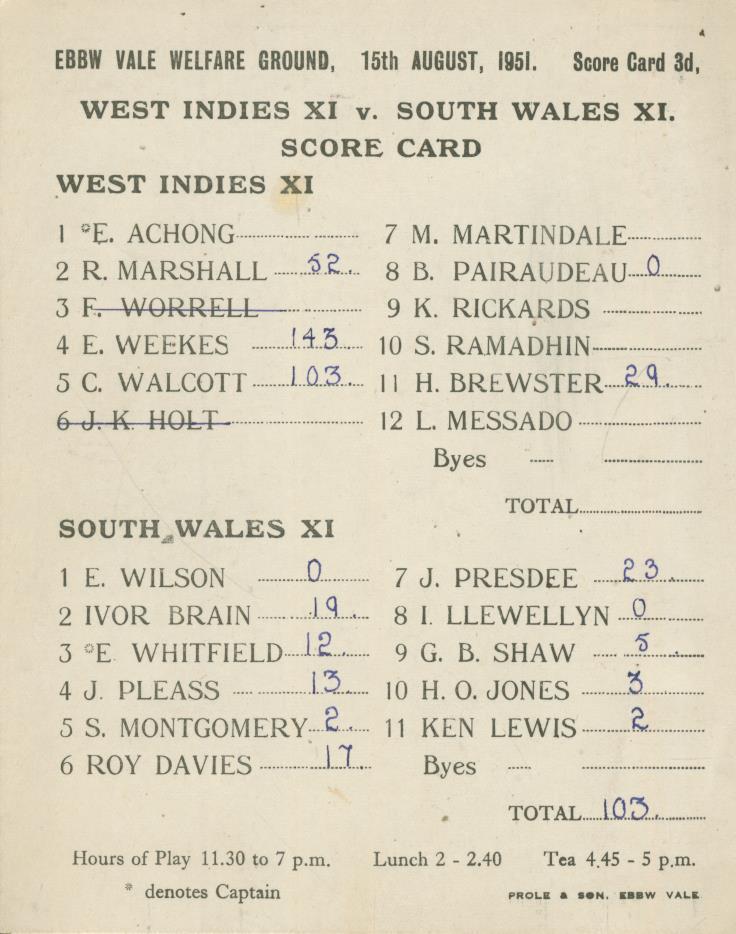 EBBW VALE WELFARE GROUND, 15th AUGUST, 1951. Score Card 3d,
WEST INDIES XI v. SOUTH WALES XI.
SCORE CARD
WEST INDIES XI
1 *E. ACHONG
2 R. MARSHALL 52.
3 F. WORRELL
4 E. WEEKES 143
5 C. WALCOTT 103.
6 J. K. HOLT
7 M. MARTINDALE
8 B. PAIRAUDEAU 0
9 K. RICKARDS
10 S. RAMADHIN
11 H. BREWSTER 29.
12 L. MESSADO
Byes
TOTAL
SOUTH WALES XI
1 E. WILSON 0
2 IVOR BRAIN 19.
3 *E. WHITFIELD 12.
4 J. PLEASS 13.
5 S. MONTGOMERY 2.
6 ROY DAVIES 17
7 J. PRESDEE 23.
8 I. LLEWELLYN 0
9 G. B. SHAW 5.
10 H. O. JONES 3
11 KEN LEWIS 2
Byes
TOTAL 103.
Hours of Play 11.30 to 7 p.m. Lunch 2 - 2.40 Tea 4.45 - 5 p.m.
* denotes Captain
PROLE & SON, EBBW VALE